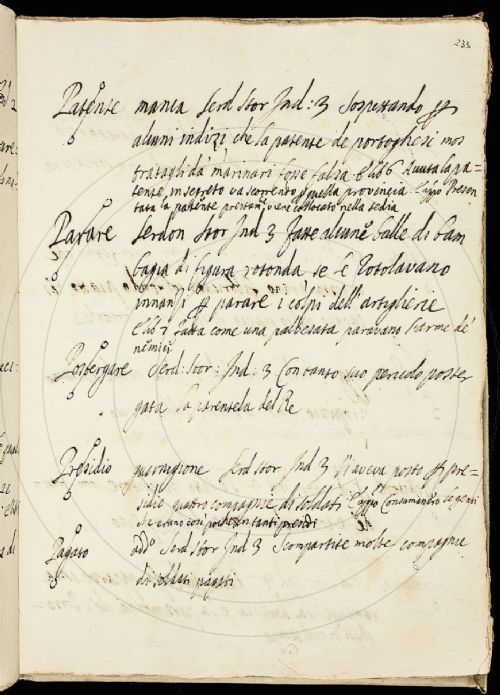 233
Patente manca Serd Stor Ind: 3 Sospettando p
alcuni indizi che la patente de portoghesi mos
tratagli dà marinari fosse falsa E lib 6 Avuta la pa=
tente, in segreto va scorrendo quella provincia. Lappo Presen
tata la patente vien collocato nella sedia
Parare Serdon Stor Ind 3 Fatte alcune balle di bam
bagia di figura rotonda se le rotolavano
innanzi p parare i colpi dell'artiglierie
E lib 7 Fatta come una palvesata, paravano l'arme de
nemici.
Postergare Serd: Stor: Ind: 3 Con tanto suo pericolo poster
gata la parentela del Re
Presidio guarnigione Serd Stor Ind 3 V'aveva posto p pre=
sidio quattro compagnie di soldati
Pagato add.o Serd Stor Ind 3 Scompartite molte compagnie
di soldati pagati